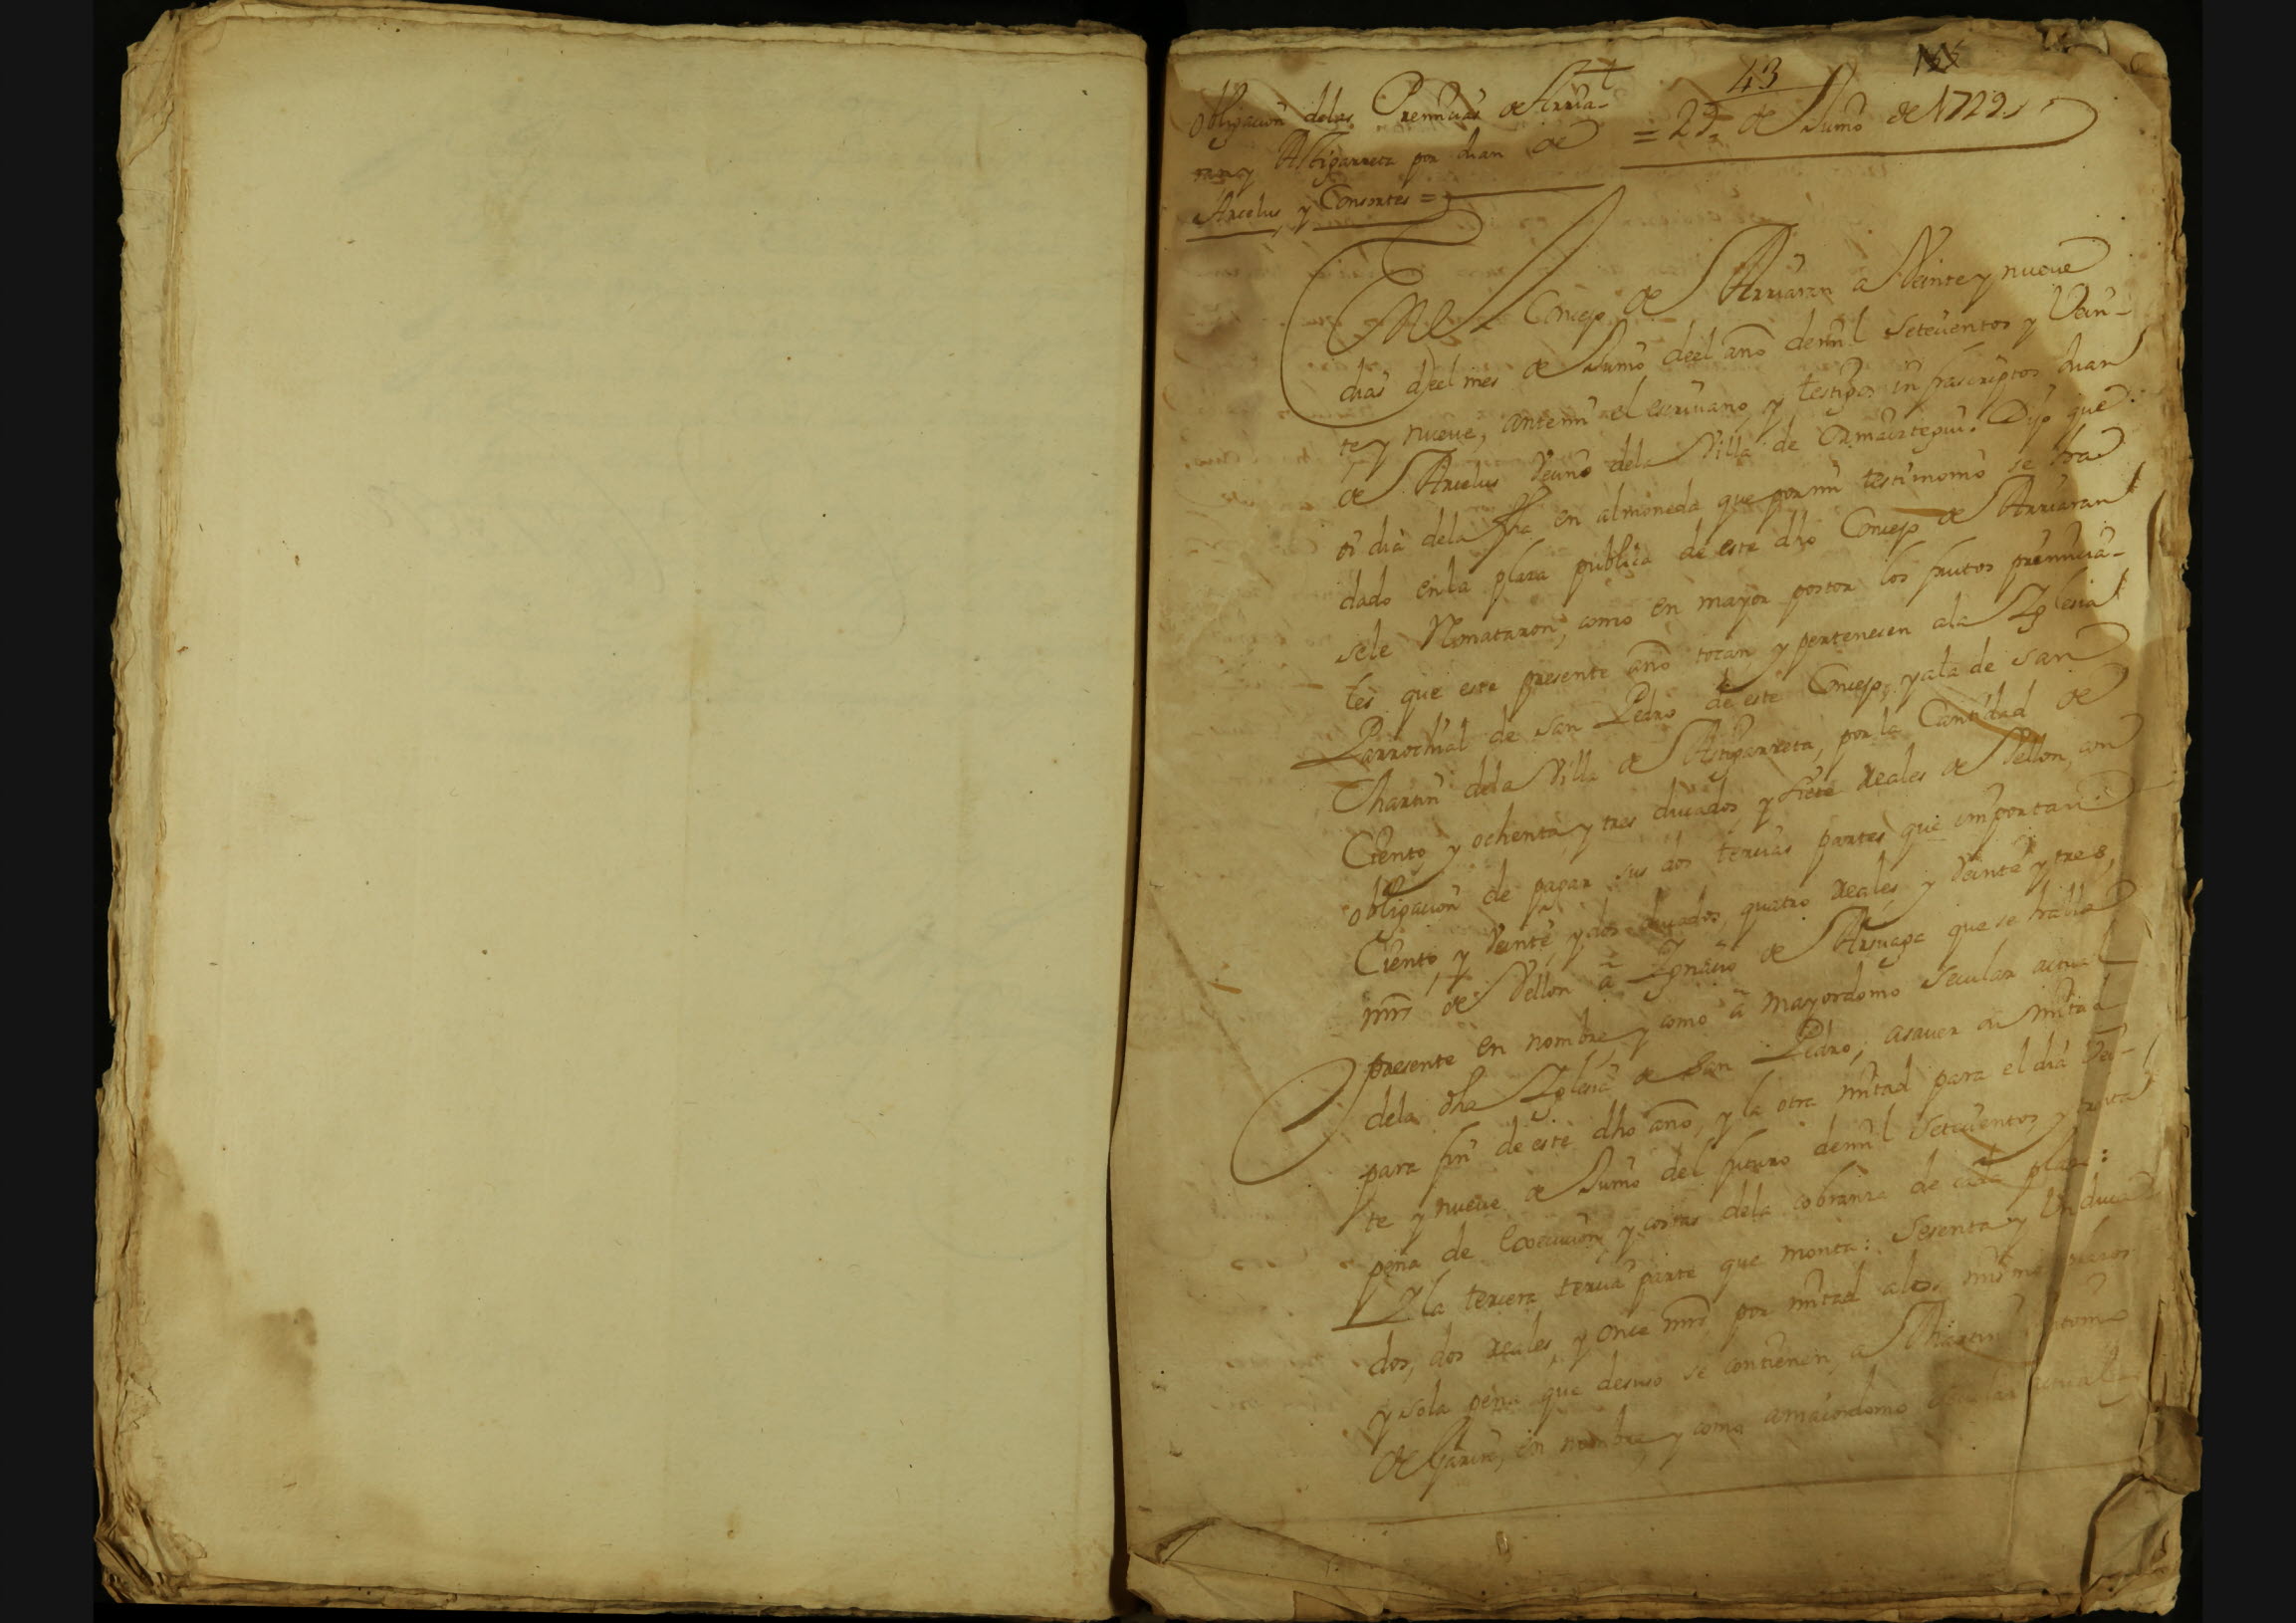 43
obligacion delas Premicias de Arria-
ran y Astigarreta por Juan de
Arcelus, y Consortes =
= 29 de Junio de 1729.
En el Concejo de Arriaran a Veinte y nueve
dias deel mes de Junio deel año de mil Setecientos y Vein-
te y nueve, ante mi el escrivano, y testigos infrascriptos Juan
de Arcelus Vecino dela Villa de Ormaiztegui. Dijo que:
oi dia dela fha en almoneda que por mi testimonio se ha
dado en la plaza publica de este dho Concejo de Arriaran
sele Remataron, como en mayor postor los frutos premicia-
les que este presente año tocan y pertenecen ala Iglesia
Parrochial de San Pedro de este Concejo, y ala de San
Martin dela Villa de Astigarreta, por la Cantidad de
Ciento y ochenta y tres ducados, y siete Reales de Vellon, con
obligacion de pagar sus dos tercias partes que importan:
Ciento y Veinte y dos ducados, quatro Reales y Veinte y tres,
mrs de Vellon a Ignacio de Arsuaga que se halla
presente en nombre y como a mayordomo Secular actual
dela dha Iglesia de San Pedro, asaver su mitad
para fin de este dho año, y la otra mitad para el dia Vein-
te y nueve de Junio del futuro de mil Setecientos y treinta
pena de execucion, y costas dela cobranza de cada plazo:
Y la tercera tercia parte que monta: Sesenta y Un duca-
dos, dos Reales, y once mrs por mitad alos mismos plazos
y sola pena que desuso se contienen, a Martin Antonio
de Garin, en nombre, y como amaiordomo secular actual